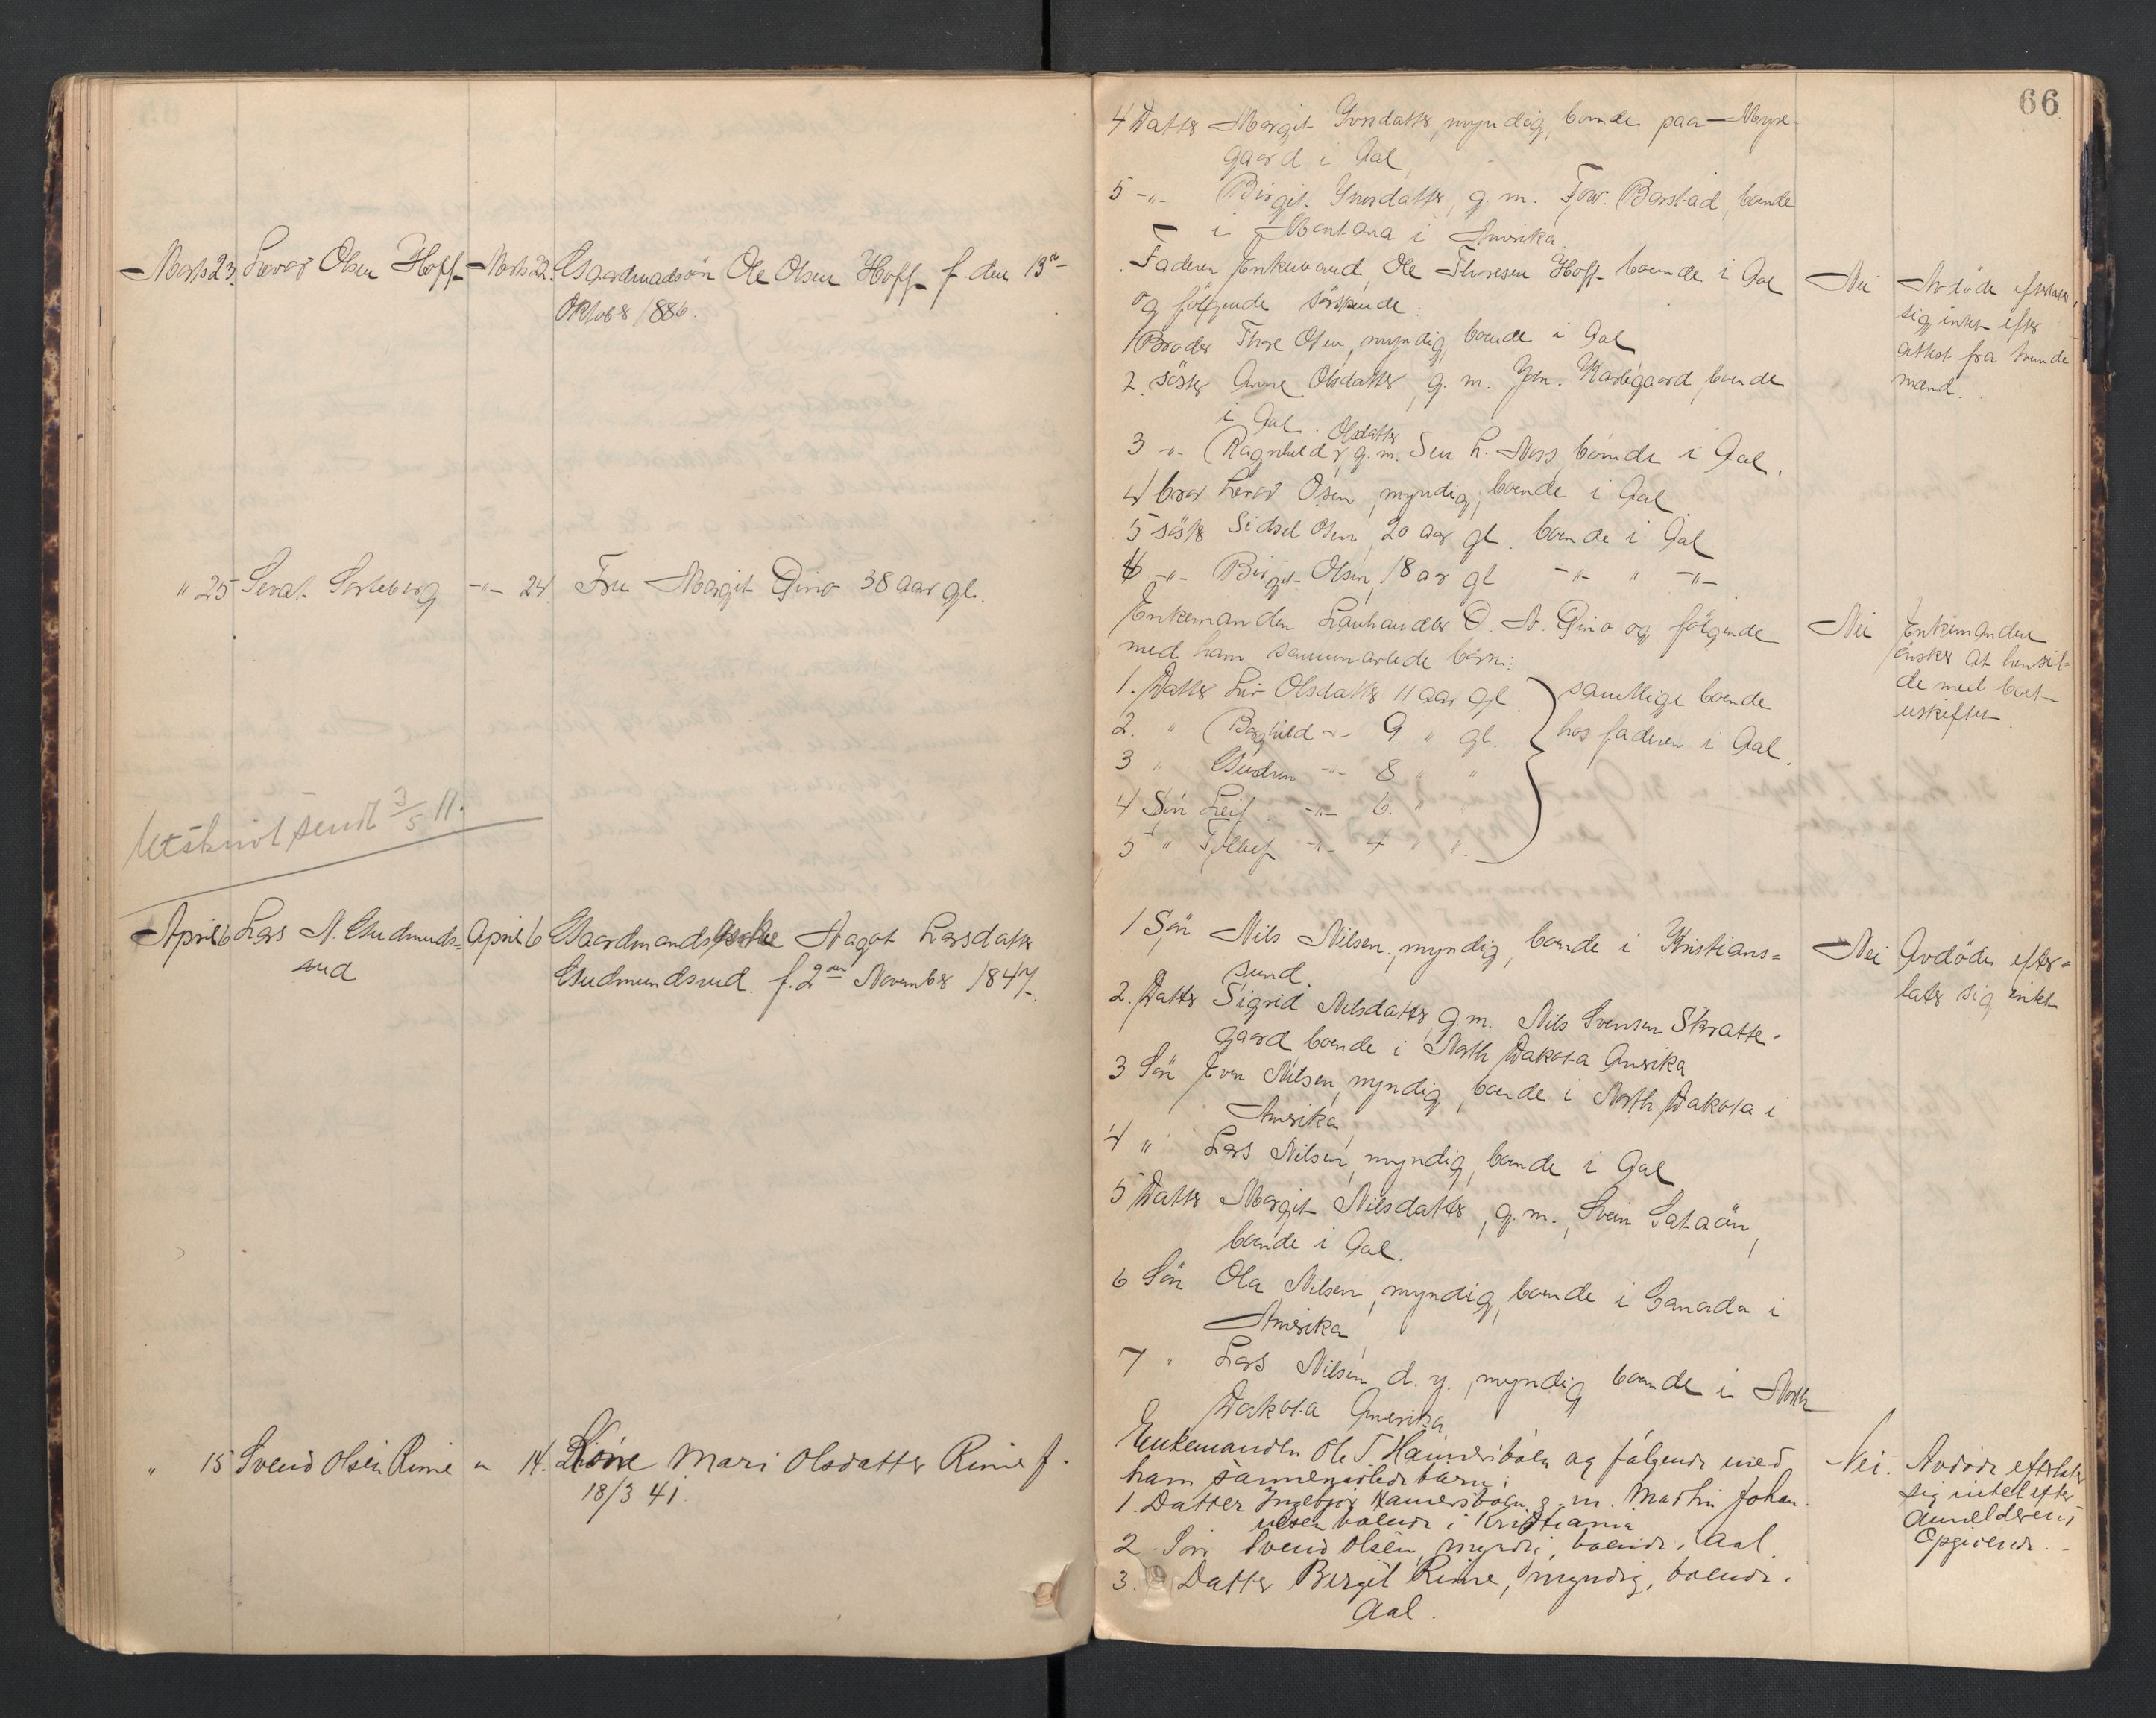 Marts 23. Levor Olsen Hoff Marts 22. Gaardmadssön Ole Olsen Hoff f den 13de
Oktober 1886.
" 25 Sevat Sorteberg -"- 24. Fru Margit Qino 38 aar gl.
Utskrivt sendt 3/5 11.
April 6 Lars N. Gudmunds= April 6 Gaardmandsenke Aagot Larsdatter
rud Gudmundsrud. f. 2den November 1847.
" 15 Svend Olsen Rime " 14. Kone Mari Olsdatter Rime f.
18/3 41.
66
4 Datter Margit Iversdatter, myndig, boende paa Myre-
gaard i Aal
5 -"- Birgit Iversdatter, g. m. Barstad, boende
i Montana i Amerika.
Faderen Enkemand Ole Thoresen Hoff boende i Aal
og følgende söskende:
1 Broder Thore Olsen, myndig, boende i Aal
2. söster Anne Olsdatter, g. m. boende
i Aal.
3 -"- Ragnhild Olsdatter g. m. Sven L. Ness, boende i Aal.
4 bror Levor Olsen, myndig, boende i Aal
5 söster Sidsel Olsen, 20 aar gl. boende i Aal
6 -"- Birgit Olsen, 18 ar gl -"- " -"-
Nei Avdöde efterlater
sig intet efter
attest fra tvende
mænd.
Enkemanden Lanhandler O. A. Qino og følgende
med ham sammenavlede börn:
1. Datter Liv Olsdatter 11 aar gl. samtlige boende
2. " Borghild -"- 9 " gl. hos faderen i Aal.
3 " Gudrun -"- 8 " "
4 Sön Leif -"- 6. " "
5 " Tollef -"- 4 " "
Nei Enkemanden
önsker at hensit-
de med boet
uskiftet.
1 Sön Nils Nilsen, myndig, boende i Kristians=
sund.
2. Datter Sigrid Nilsdatter, g. m. Nils Svensen Skratte-
gaard, boende i North Dakota Amerika
3 Sön Even Nilsen, myndig, boende i North Dakota i
Amerika
4 " Lars Nilsen, myndig, boende i Aal
5 Datter Margit Nilsdatter, g. m. Svein Sataöen,
boende i Aal.
6 Sön Ola Nilsen, myndig, boende i Canada i
Amerika
7 " Lars Nilsen d. y., myndig boende i North
Dakota Amerika
Nei Avdöde efter=
later sig intet
Enkemanden Ole T Hamersbøen og følgende med
ham sammenavlede børn:
1. Datter Ingebjør Hamersbøen g. m. Martin Johan-
nesen boende i Kristiania
2. Søn Svend Olsen, myndig, boende i Aal.
3. Datter Bergit Rime, myndig, boende i
Aal.
Nei. Avdøde efterlater
sig intet efter
Anmelderens
Opgivende.